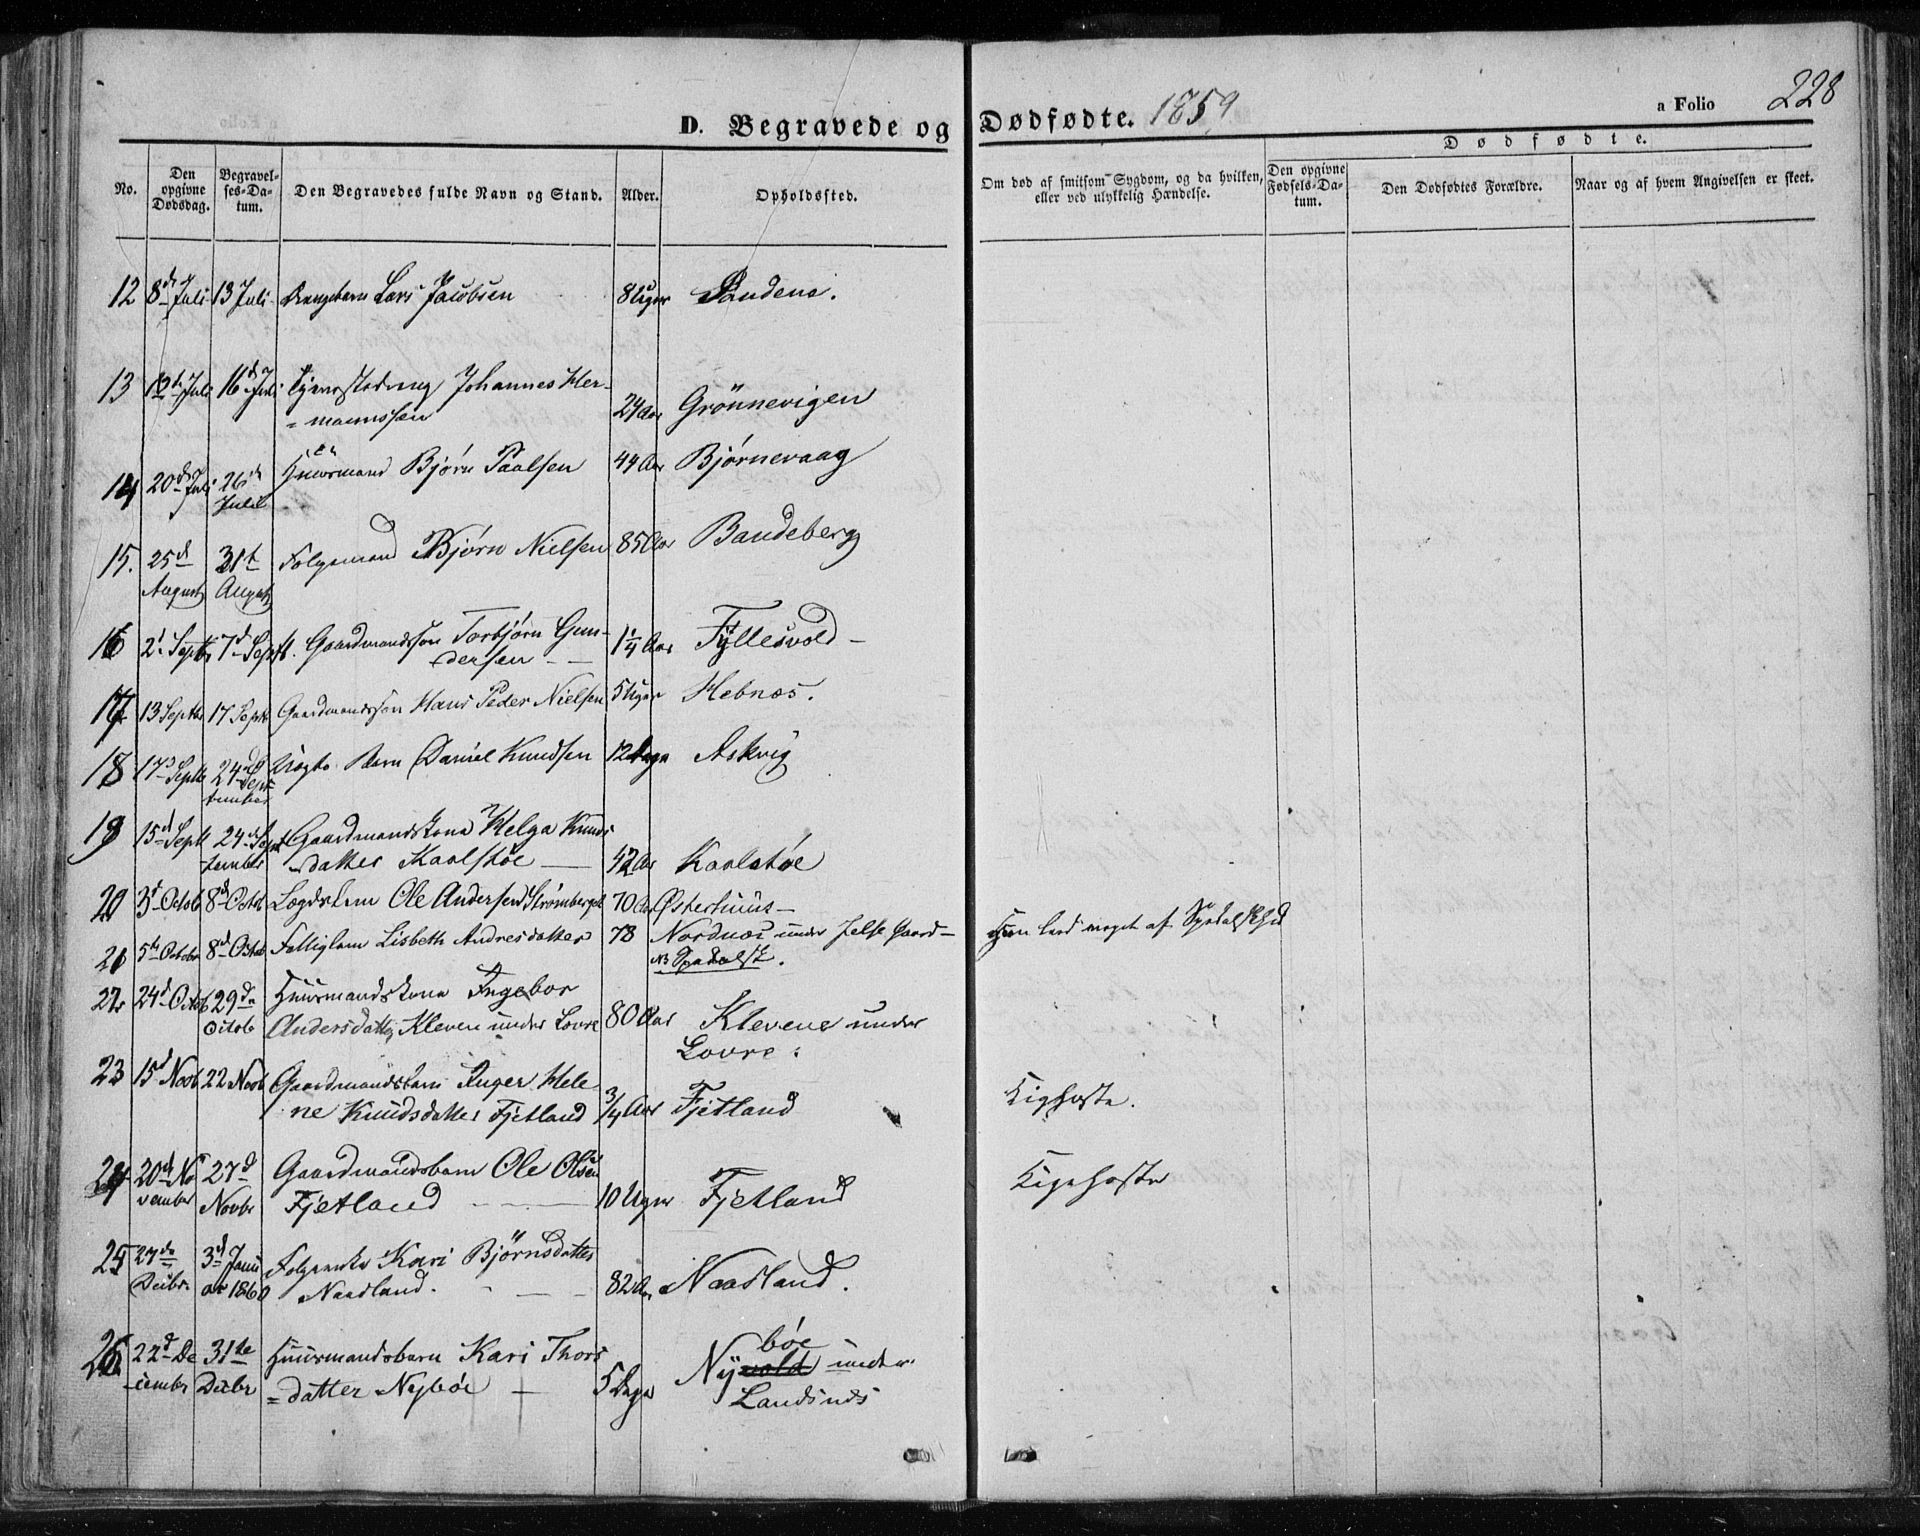 D. Begravede og Dødfødte. 1859
a Folio 228
No.
Den opgivne Dødsdag.
Begravelses-Datum.
Den Begravedes fulde Navn og Stand.
Alder.
Opholdssted.
Om død af smitsom Sygdom, og da hvilken, eller ved ulykkelig Hændelse.
Dødfødte.
Den opgivne Fødsels-Datum.
Den Dødfødtes Forældre.
Naar og af hvem Angivelsen er skeet.
12 8d Juli 13 Juli Lars Jacobsen 8 Uger Sandene.
13 12d Juli 16d Juli Johannes Her-
=mannssen 24 Aar Grönnevigen
14 20d Juli 26d Juli Huusmand Bjørn Paalsen 44 Aar Bjørnevaag
15. 25d August 31t August Folgemand Bjørn Nielsen 85 Aar Bandeberg
16 2d Septb 7d Septb. Gaardmandssøn Torbjørn Gun-
dersen 1 1/4 Aar Fyllesvold
17 13 Septb 17 Septb Gaardmandssøn Hans Peder Nielsen 5 Uger Hebnæs.
18 17d Septb 24d Septbember Barn Daniel Knudsen 12 Dage Askvig
19 15d Septb 24d September Gaardmandskona Helga Knuds
datter Kaalstøe 42 Aar Kaalstøe
20 3d Octob 8d Octob Lægdslem Ole Andersen Strømberget 70 Aar Østerhuus
21 5th Octobr 8d Octob Fattiglem Lisbeth Andresdatter 78 Nordnæs under Jelse Gaard
NB Spedalsk. Hun leed meget af Spedalskhed
22 24d Octob 29de Octob Huusmandskona Ingebor
Andersdatter Kleven under Lovre 80 Aar Klevene under
Lovre.
23 15d Novb 22 Novb Gaardmandsbarn Inger Hele
ne Knudsdatter Fjetland 3/4 Aar Fjetland Kighoste.
24 20d November 27d Novbr Gaardmandsbarn Ole Olsen
Fjetland 10 Uger Fjetland Kigehoste
25 27de Decbr. 3d Januar 1860 Kari Bjørnsdatter
Naadland. 82 Aar Naasland.
26 22d December 31te Decbr Huusmandsbarn Kari Thors
=datter Nyböe 5 Dage Nyvold böe under
Landsnæs